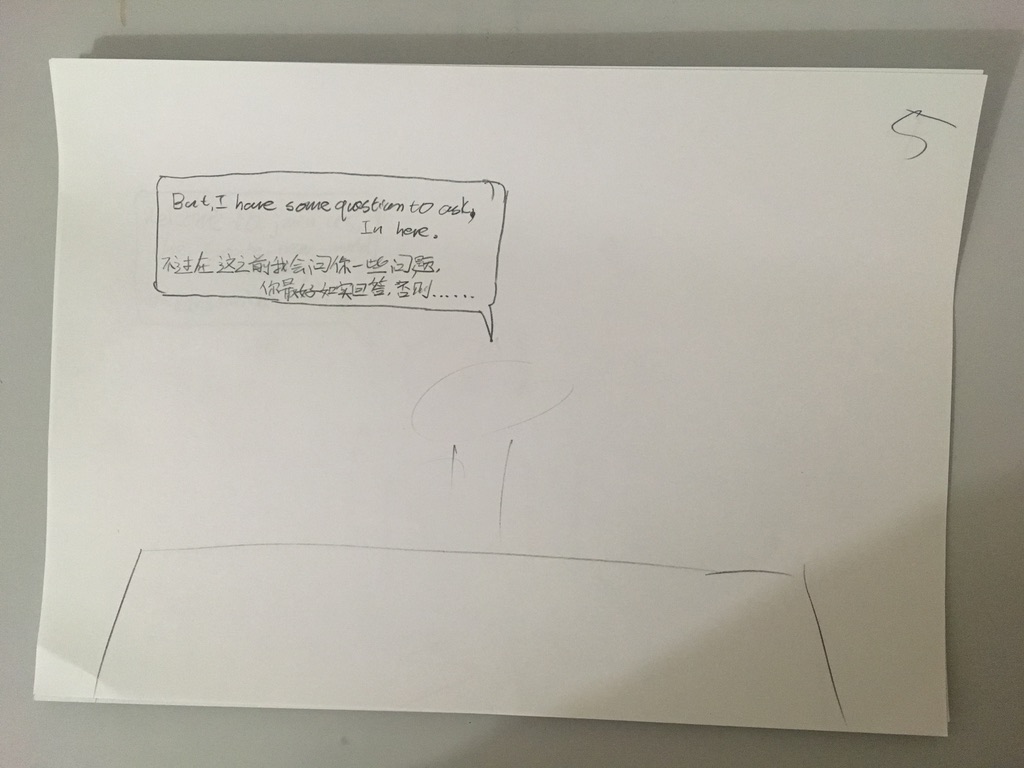 5
But, I have some question to ask,
In here.
不过在这之前我会问你一些问题,
你最好如实回答,否则......